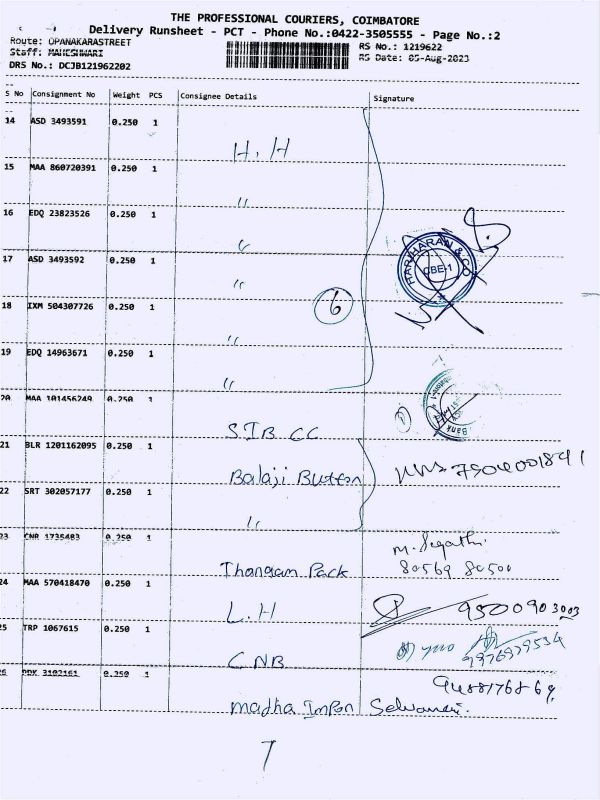 THE PROFESSIONAL COURIERS, COIMBATORE
Delivery Runsheet - PCT - Phone No.:0422-3505555 - Page No.:2
Route: OPANAKARASTREET
Staff: MAHESHWARI
DRS No.: DCJB121962202
RS No.: 1219622
RS Date: 05-Aug-2023
S No Consignment No Weight PCS Consignee Details Signature
14 ASD 3493591 0.250 1
H.H
15 MAA 860720391 0.250 1
"
16 EDQ 23823526 0.250 1
"
17 ASD 3493592 0.250 1
"
HARIHARAN & CO
CBE-1
18 IXM 504307726 0.250 1
"
6
19 EDQ 14963671 0.250 1
"
20 MAA 101456249 0.250 1
SIB CC
Bank
21 BLR 1201162095 0.250 1
Balaji Button
22 SRT 302057177 0.250 1
"
23 CNR 1735483 0.250 1
Thangam Pack
24 MAA 570418470 0.250 1
L.H
9500903003
25 TRP 1067615 0.250 1
CNB
9976979534
26 3102161 0.250 1
Madha Selvamani.
7